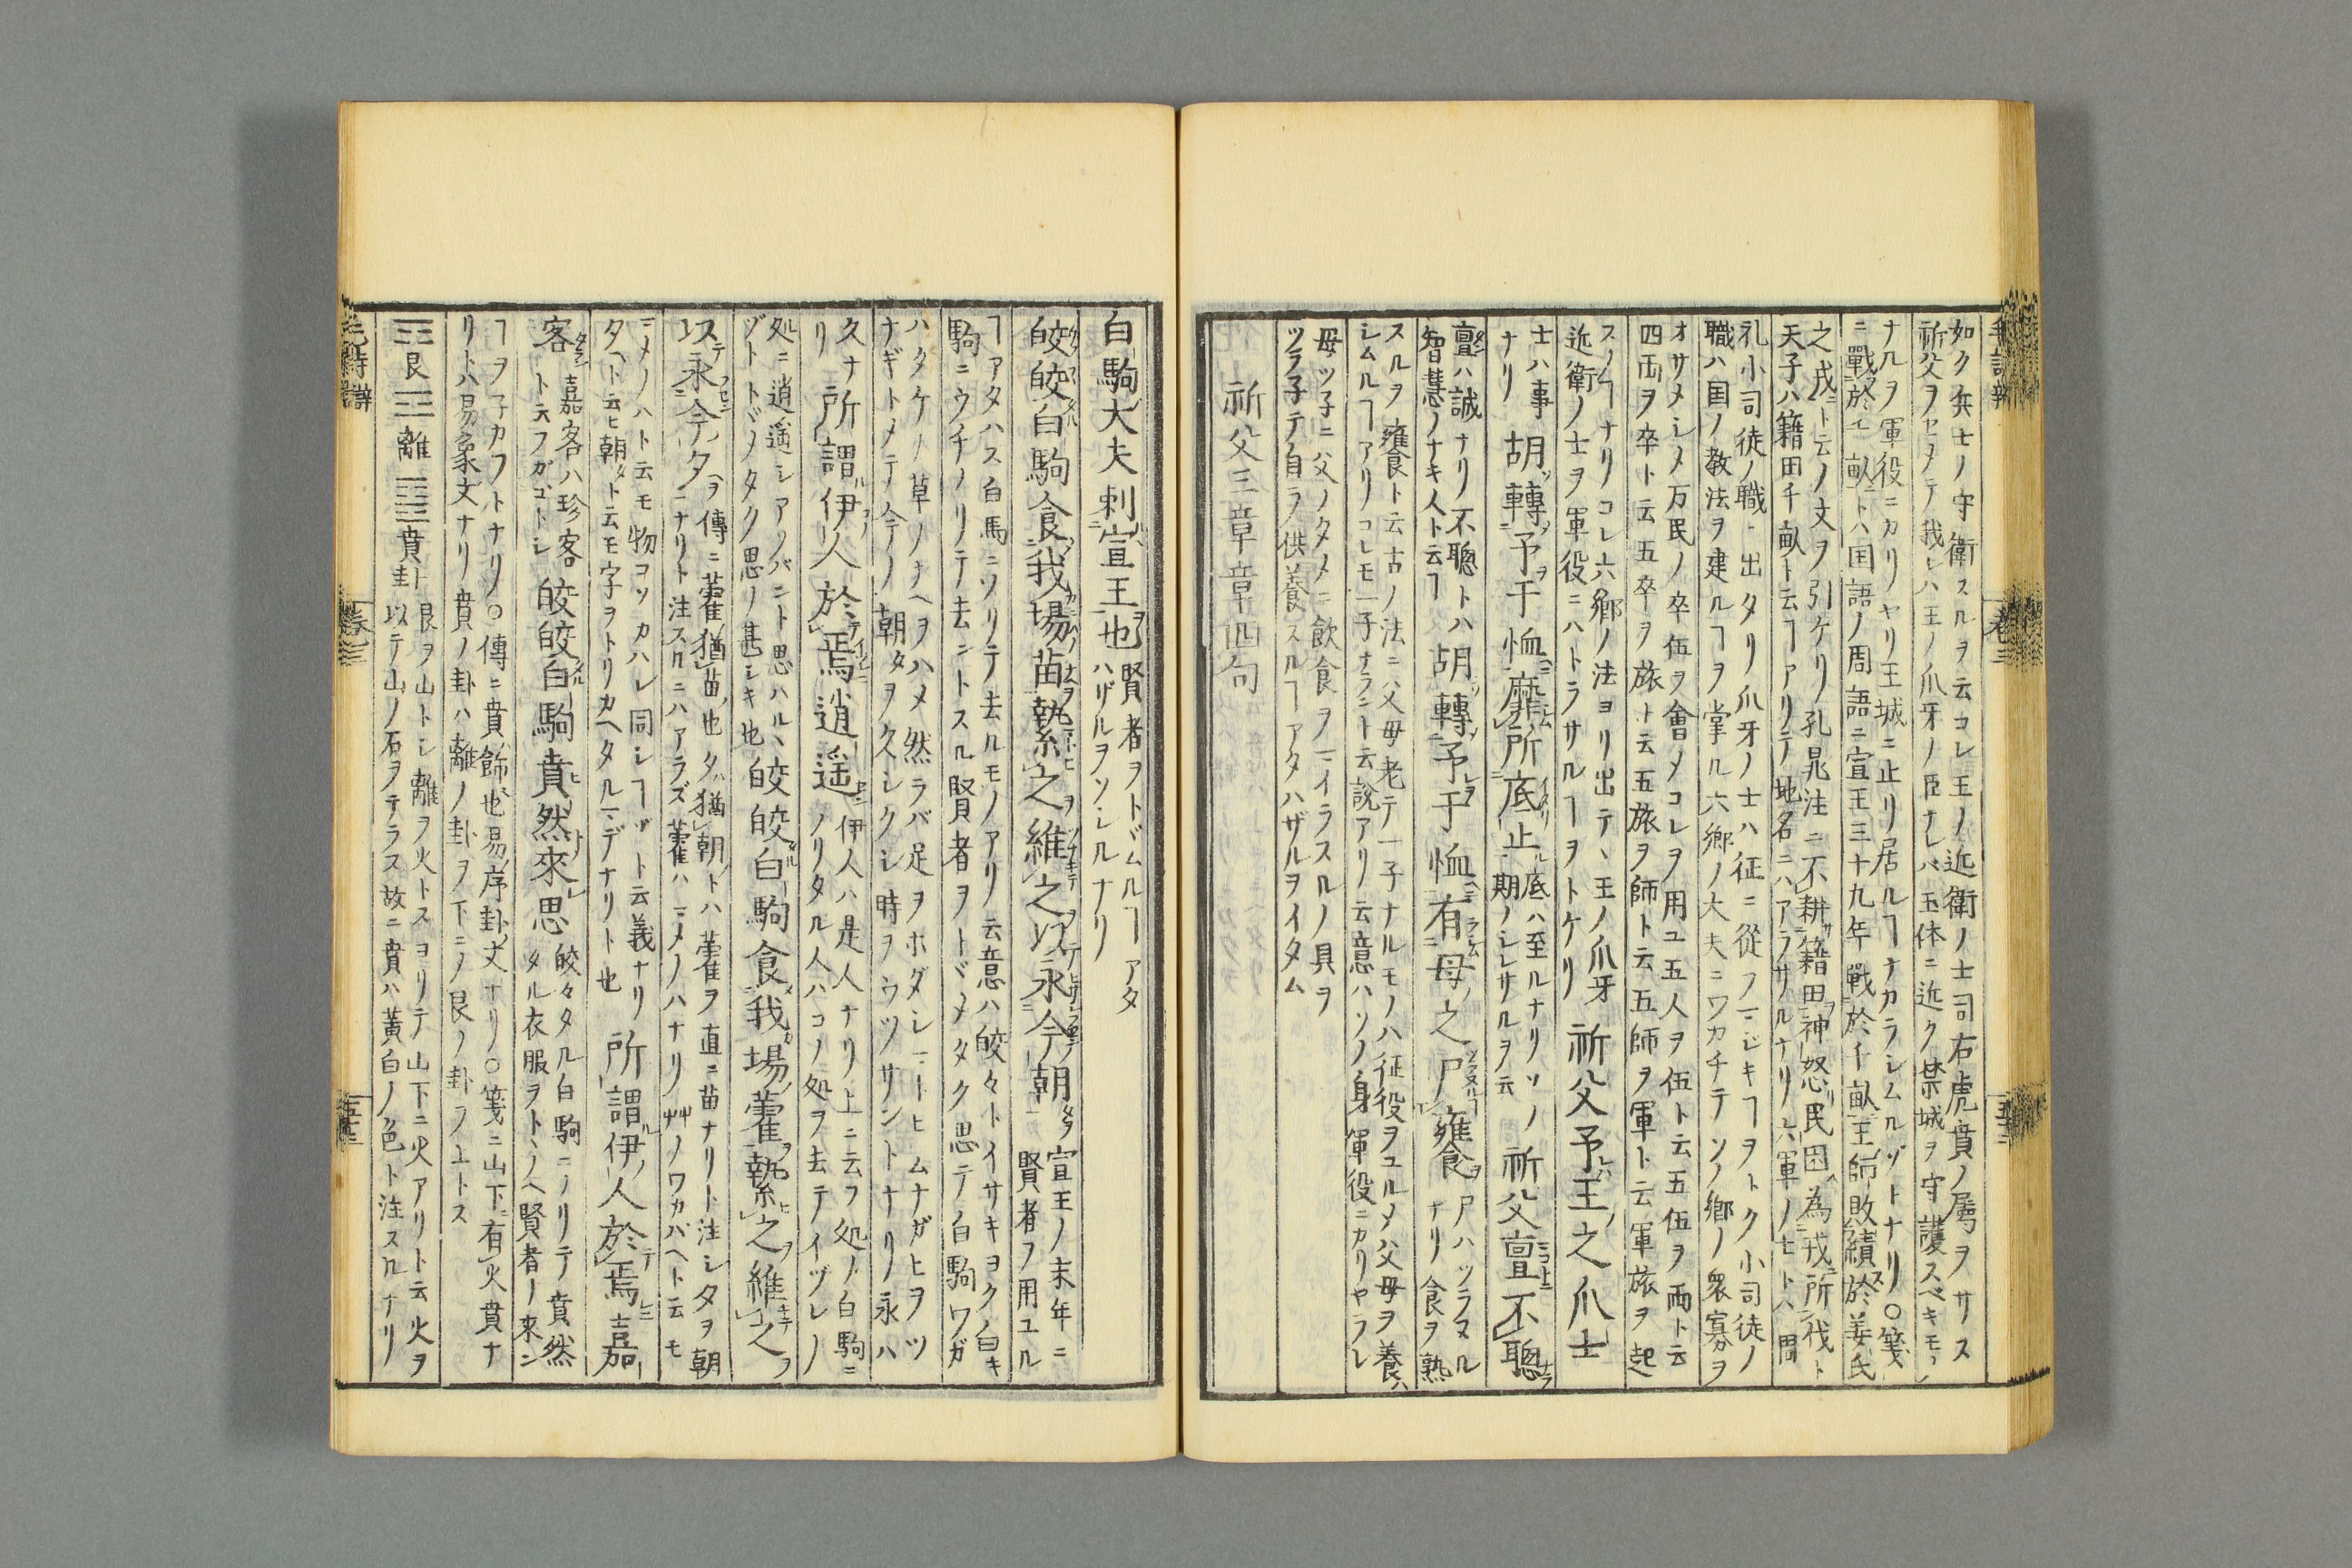 如ク兵士ノ守衛スルヲ云コレ王ノ近衛ノ士司右虎賁ノ屬ヲサス
祈父ヲセメテ我レハ王ノ爪牙ノ臣ナレバ玉体ニ近ク禁城ヲ守護スベキモノ
ナルヲ軍役ニカリヤリ王城ニ止リ居ルヿナカラシムルゾトナリ○箋
ニ戰於千畝ニトハ国語ノ周語ニ宣王三十九年戰於千畝王師敗績於姜氏
之戎ニト云ノ文ヲ引ケリ孔晁注ニ不耕籍田神怒民困為戎所伐ト
天子ハ籍田千畝ト云ヿアリテ地名ニハアラサルナリ六軍ノ士トハ周
礼小司徒ノ職ニ出タリ爪牙ノ士ハ征ニ從フマジキヿヲトク小司徒ノ
職ハ国ノ教法ヲ建ルヿヲ掌ル六郷ノ大夫ニワカチテソノ郷ノ衆寡ヲ
オサメシメ万民ノ卒伍ヲ會メコレヲ用ユ五人ヲ伍ト云五伍ヲ両ト云
四両ヲ卒ト云五卒ヲ旅ト云五旅ヲ師ト云五師ヲ軍ト云軍旅ヲ起
スノヿナリコレ六郷ノ法ヨリ出テヽ王ノ爪牙
近衛ノ士ヲ軍役ニハトラサルヿヲトケリ
祈父予王之爪士
士ハ事
ナリ
胡轉予于恤靡所底止
底ハ至ルナリソノ
期ノシレサルヲ云
祈父亶不聰
亶ハ誠ナリ不聰トハ
智慧ノナキ人ト云ヿ
胡轉予于恤有母之尸雍食
尸ハツラヌル
ナリ食ヲ熟
スルヲ雍食ト云古ノ法ニ父母老テ一子ナルモノハ征役ヲユルメ父母ヲ養ハ
シムルヿアリコレモ一子ナラント云説アリ云意ハソノ身軍役ニカリヤラレ
母ツ子ニ父ノタメニ飲食ヲマイラスルノ具ヲ
ツラ子テ自ラ供養スルヿアタハザルヲイタム
祈父三章章四句
白駒大夫刺宣王也
賢者ヲトドムルヿアタ
ハザルヲソシルナリ
皎皎白駒食我場苗縶之維之以永今朝
宣王ノ末年ニ
賢者ヲ用ユル
ヿアタハス白馬ニノリテ去ルモノアリ云意ハ皎々トイサキヨク白キ
駒ニウチノリテ去ントスル賢者ヲトドメタク思テ白駒ワガ
ハタケノ草ノナヘヲハメ然ラバ足ヲホダシマトヒムナガヒヲツ
ナギトメテ今ノ朝タヲクシクシ時ヲウツサントナリ永ハ
久ナ
リ
所謂伊人於焉逍遥
伊人ハ是人ナリ上ニ云フ処ノ白駒ニ
ノリタル人ハコノ処ヲ去テイヅレノ
処ニ逍遥シアソバント思ハルヽ
ゾトトドメタク思ノ甚シキ也
皎皎白駒食我場藿縶之維之
以永今夕
傳ニ藿猶苗也夕猶朝トハ藿ヲ直ニ苗ナリト注シタヲ朝
ニナリト注スルニハアラズ藿ハマメノハナリ艸ノワカバヘト云モ
マメノハト云モ物コソカハレ同シヿゾト云義ナリ
夕ヘト云ヒ朝タト云モ字ヲトリカヘタルマデナリト也
所謂伊人於焉嘉
客
嘉客ハ珍客
ト云フガゴトシ
皎皎白駒賁然來思
皎々タル白駒ニノリテ賁然
タル衣服ヲトヽノヘ賢者ノ来ン
ヿヲ子カフトナリ○傳ニ賁飾也易序卦文ナリ○箋ニ山下有火賁ナ
リトハ易象文ナリ賁ノ卦ハ離ノ卦ヲ下ニノ艮ノ卦ヲ上トス
☶艮☲離䷕賁卦
艮ヲ山トシ離ヲ火トスヨリテ山下ニ火アリト云火ヲ
以テ山ノ石ヲテラス故ニ賁ハ黄白ノ色ト注スルナリ
毛詩辯
卷三